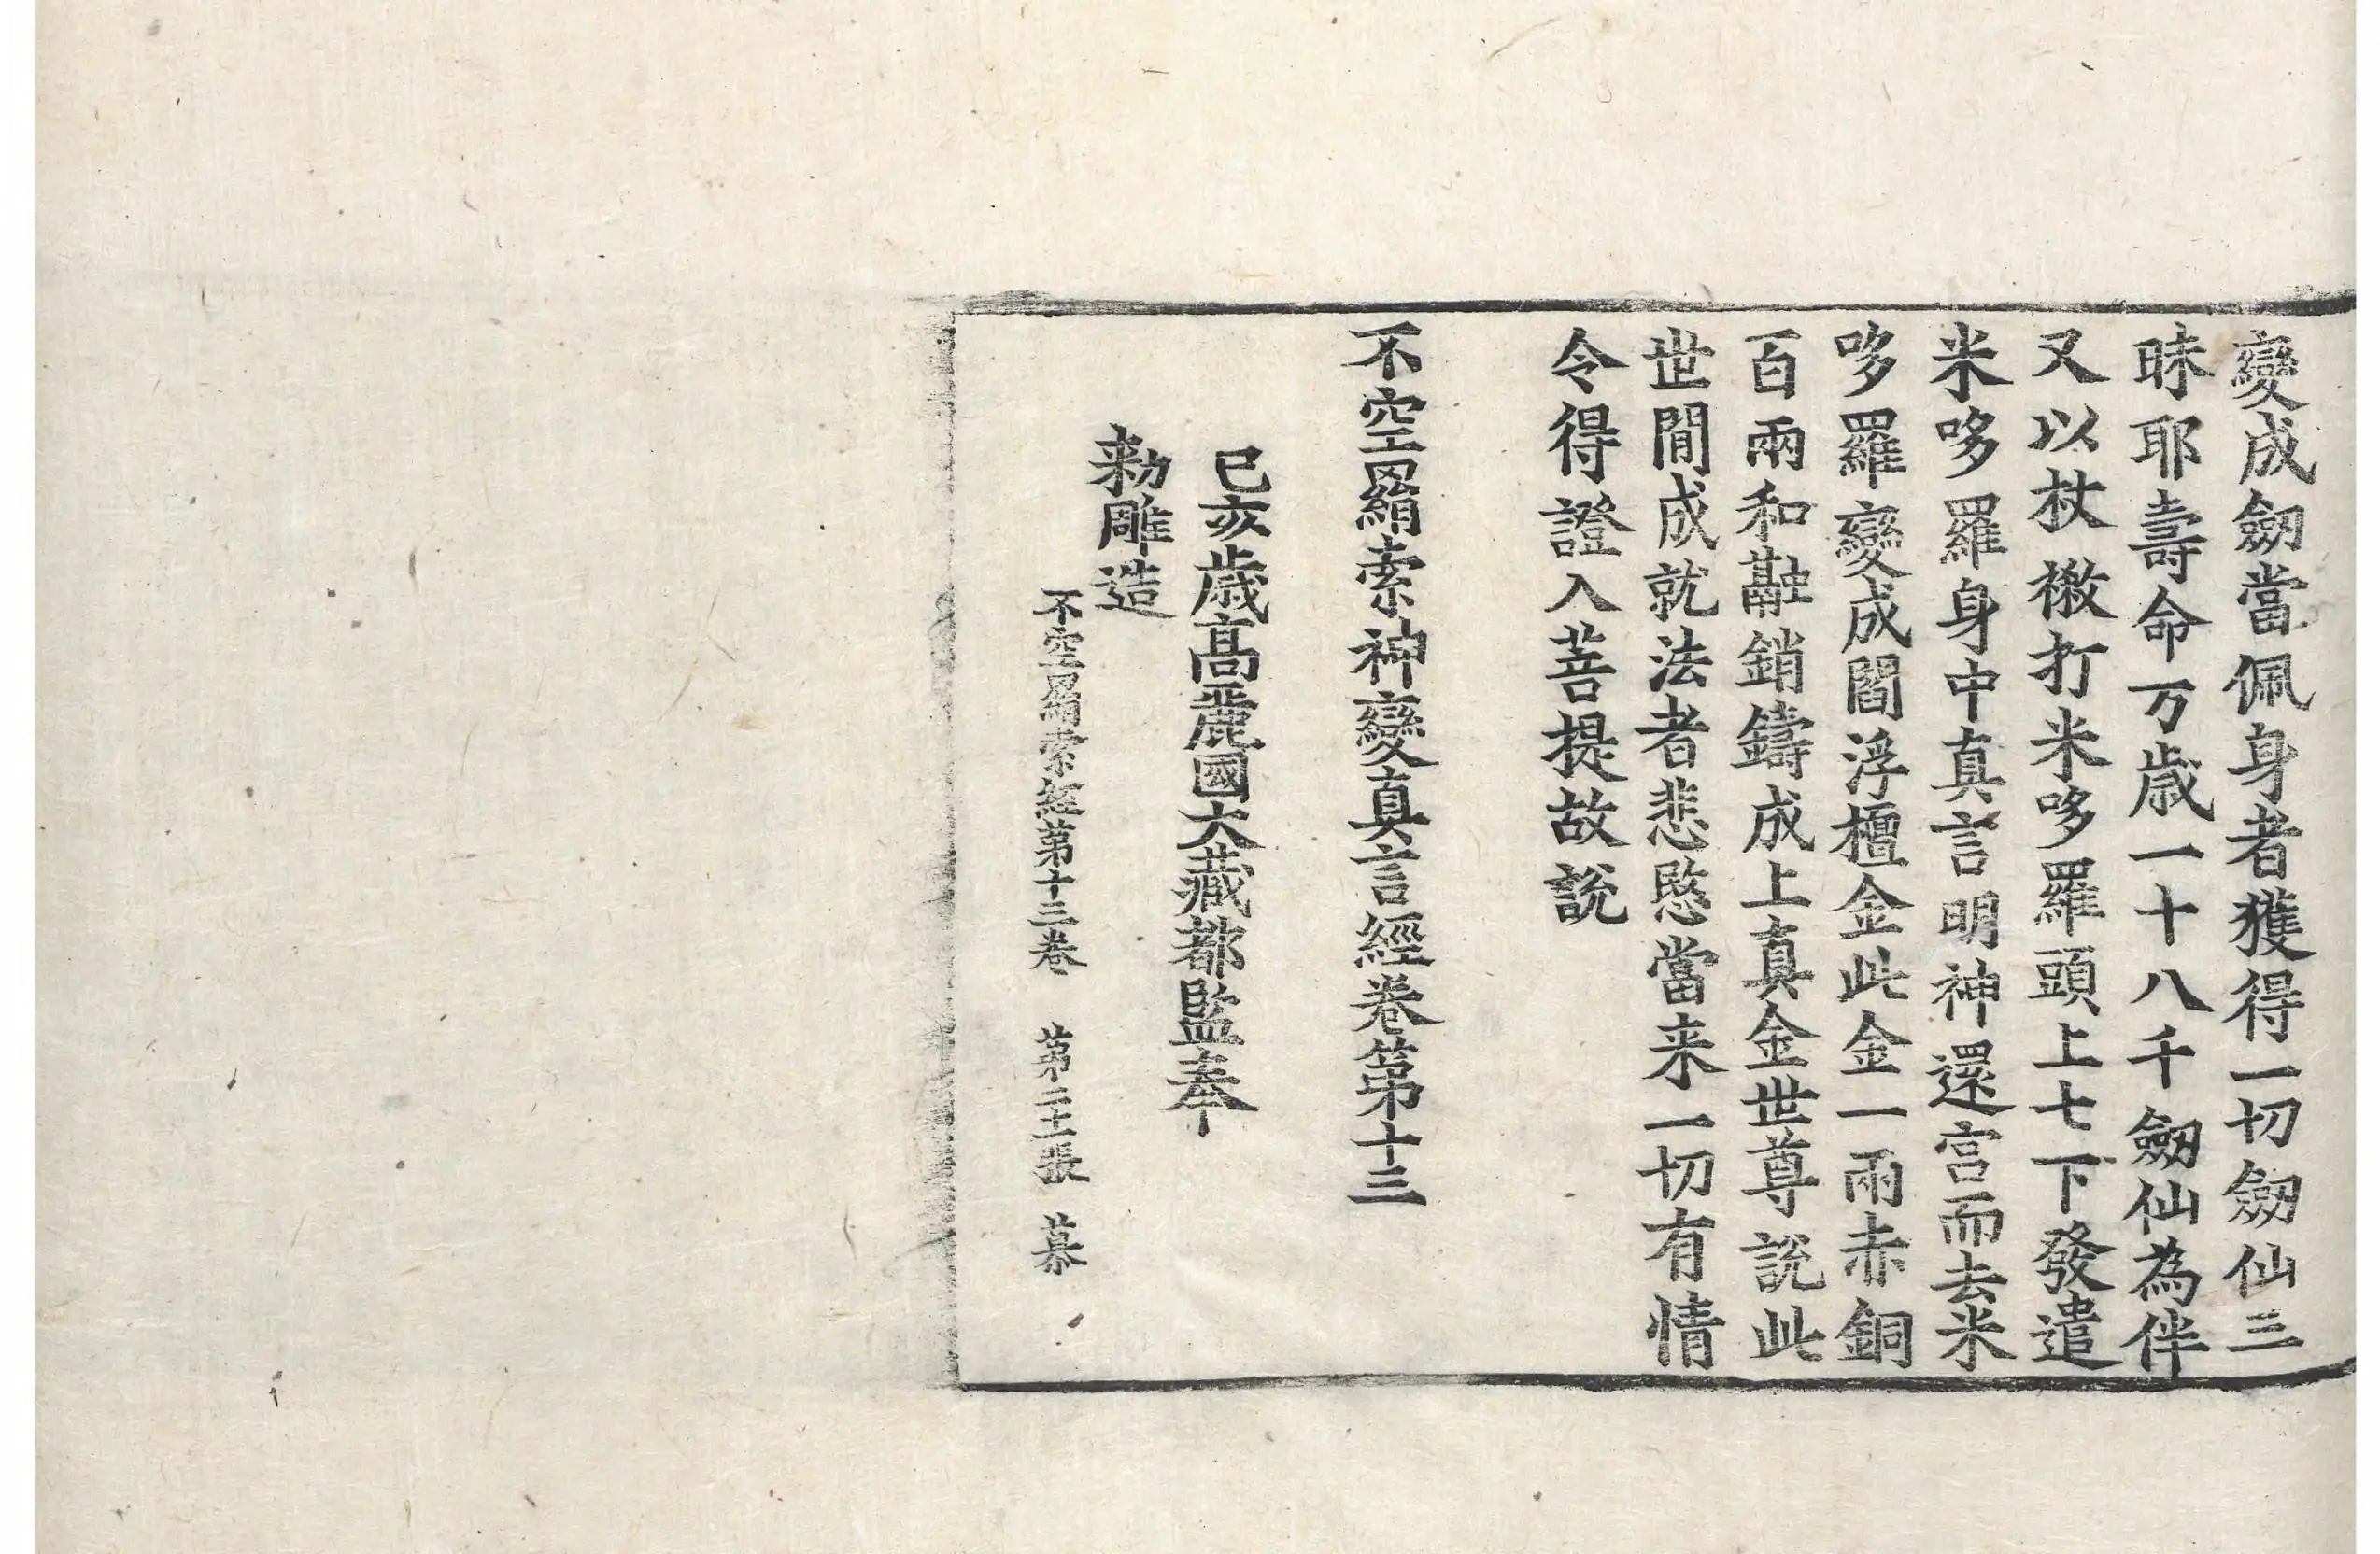 變成劒當佩身者獲得一切劒仙三
昧耶壽命万歲一十八千劒仙為伴
又以杖檄打米哆羅頭上七下發遣
米哆羅身中真言明神還宮而去米
哆羅變成閻浮檀金此金一兩赤銅
百兩和融銷鑄成上真金世尊說此
世閒成就法者悲愍當来一切有情
令得證入菩提故說
不空羂索神變真言經卷第十三
己亥歲高麗國大藏都監奉
勑雕造
不空羂索經第十三卷 第二十張 慕